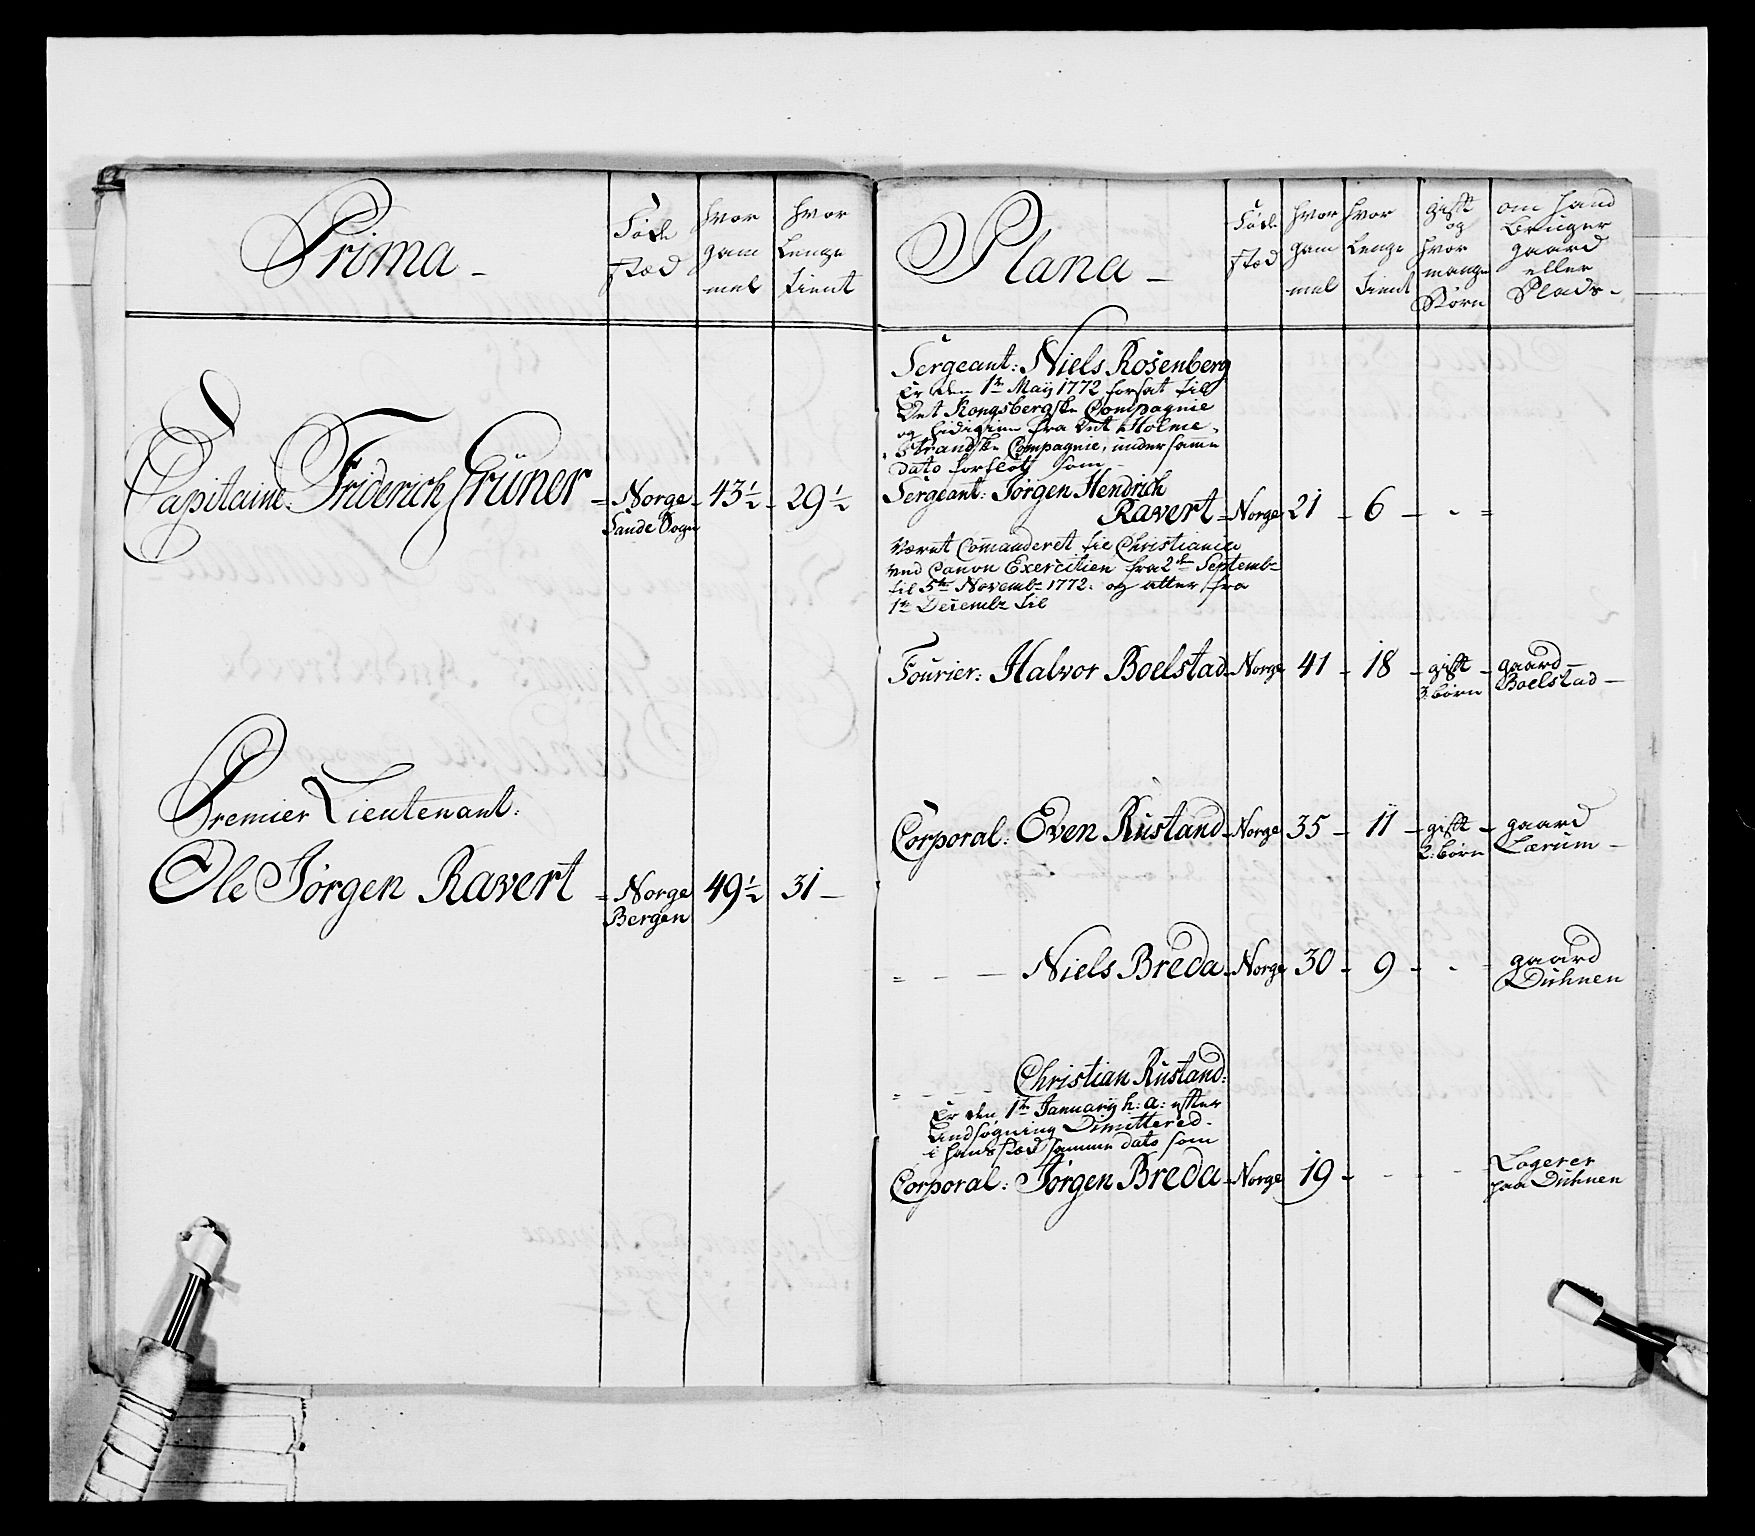 Prima -
Føde stæd
hvor gam mel
hvor Lenge tient
Capitaine: Friderich Grüner = Norge - 43½ - 29½
Sande Sogn
Premier Lieutenant:
Ole Jørgen Ravert = Norge 49½ 31 -
Bergen
Plana -
Føde stæd
hvor gam mel
hvor Lenge tient
gift og hvor mange Børn
om hand Bruger gaard eller Plads -
Sergeant: Niels Rosenberg
Er den 1te Maÿ 1772 forsat til
Det Kongsbergske Compagnie
og hid igien fra Det Holme-
strandske Compagnie, under samme
Dato forflÿt som -
Sergeant: Jørgen Hendrich
Ravert - Norge 21 - 6 - - =
Været Commanderet til Christiania
ved Canon Exercitien fra 2den Septembr
til 5te Novembr 1772. og atter fra
1te Decembr til
Fourier: Halvor Boelstad - Norge 41 - 18 - gift - gaard -
3. børn Boelstad -
Corporal: Even Rustand - Norge 35 - 11 - gift - gaard
2. børn Lærum -
= - - Niels Breda - Norge 30 - 9 - - = gaard
Duhnen
= - - Christian Rustand:
Er den 1te Januarÿ h: a: efter
Andsøgning Dimittered -
i hans stæd samme dato som
Corporal: Jørgen Breda - Norge 19 - - - Logerer
paa Duhnen